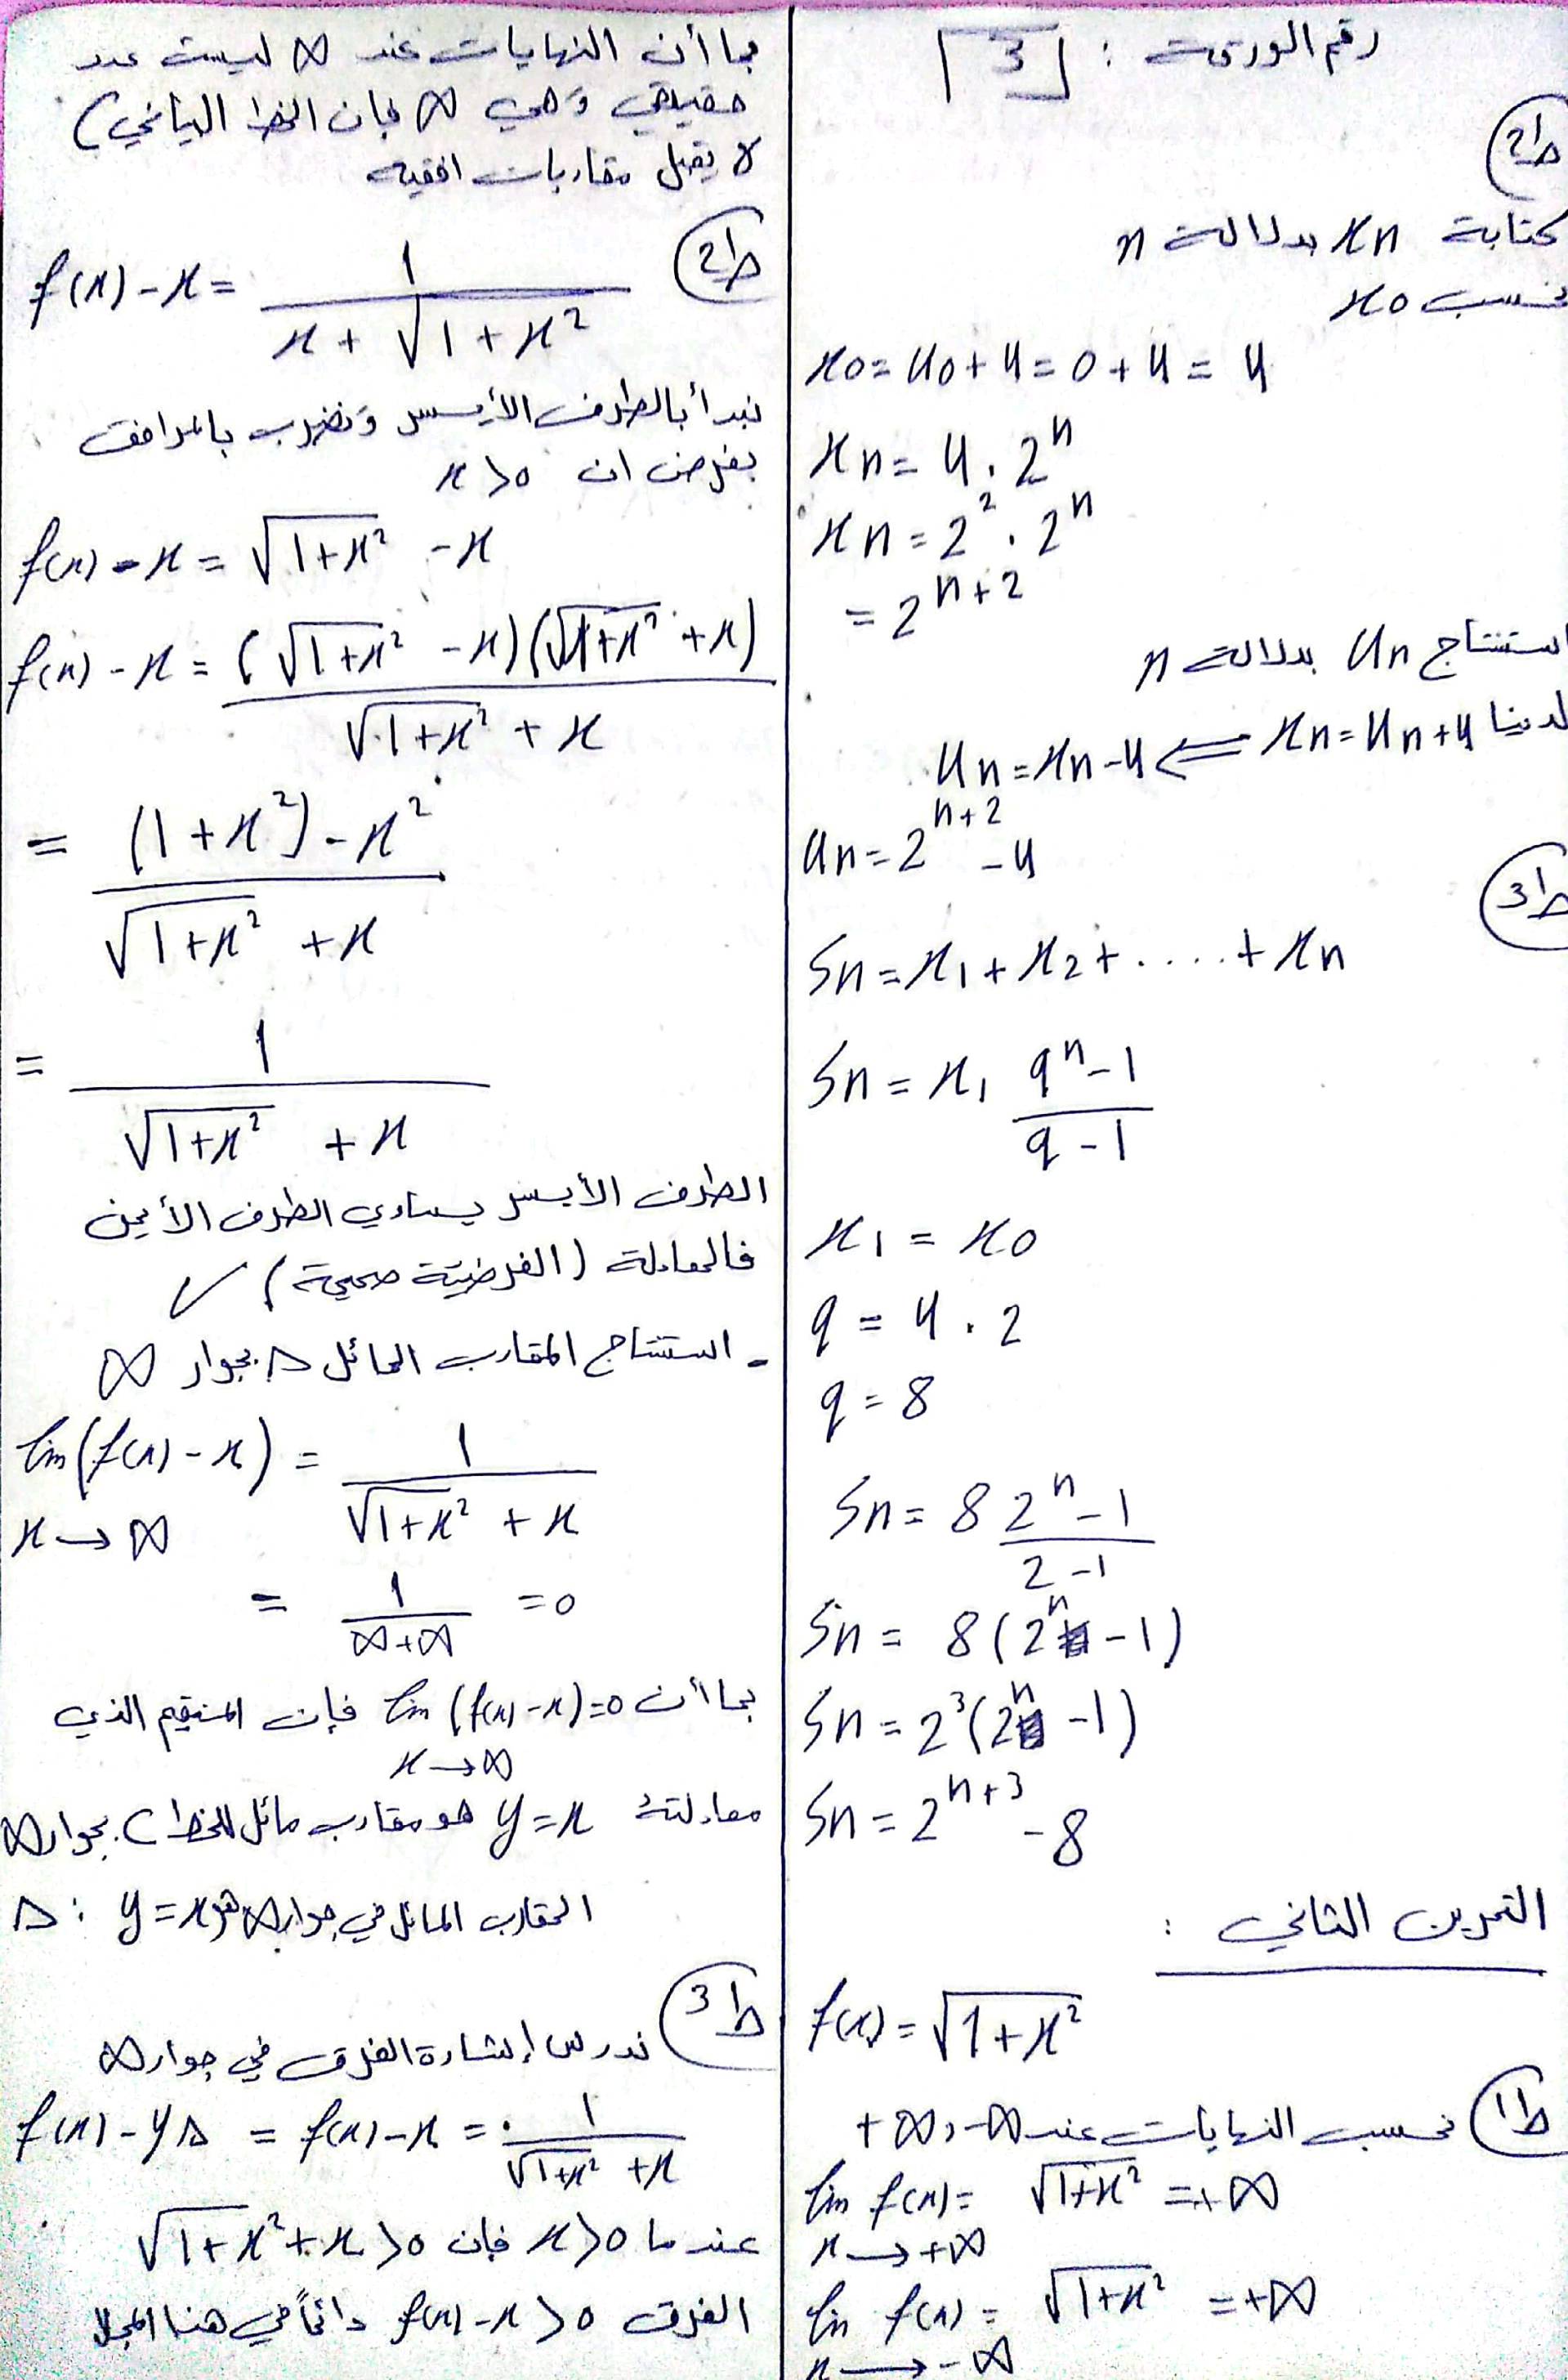 رقم الورقة : 3
ط2
كتابة xn بدلالة n
نحسب x0
x0 = u0 + 4 = 0 + 4 = 4
xn = 4 . 2^n
xn = 2^2 . 2^n
= 2^{n+2}
استنتاج un بدلالة n
لدينا xn = un + 4 ⇐ un = xn - 4
un = 2^{n+2} - 4
ط3
Sn = x1 + x2 + ..... + xn
Sn = x1 (q^n - 1)/(q - 1)
x1 = x0
q = 4 . 2
q = 8
Sn = 8 (2^n - 1)/(2 - 1)
Sn = 8(2^n - 1)
Sn = 2^3(2^n - 1)
Sn = 2^{n+3} - 8
التمرين الثاني :
f(x) = √(1+x^2)
ط1 نحسب النهايات عند -∞ ، +∞
lim f(x) = √(1+x^2) = +∞
x → +∞
lim f(x) = √(1+x^2) = +∞
x → -∞
بما أن النهايات عند ∞ ليست عدد
حقيقي وهي ∞ فإن الخط البياني C
لا يقبل مقاربات افقيه
ط2 f(x) - x = 1/(x + √(1+x^2))
نبدأ بالطرف الأيسر ونضرب بالمرافق
بفرض ان x > 0
f(x) - x = √(1+x^2) - x
f(x) - x = (√(1+x^2) - x)(√(1+x^2) + x)/(√(1+x^2) + x)
= ((1+x^2) - x^2)/(√(1+x^2) + x)
= 1/(√(1+x^2) + x)
الطرف الأيسر يساوي الطرف الأيمن
فالمعادلة (الفرضية صحيحة) ✓
- استنتاج المقارب المائل Δ بجوار ∞
lim (f(x) - x) = 1/(√(1+x^2) + x)
x → ∞
= 1/(∞+∞) = 0
بما أن lim (f(x) - x) = 0 فإن المستقيم الذي
x → ∞
معادلته y = x هو مقارب مائل للخط C بجوار ∞
المقارب المائل في جوار ∞ هو Δ : y = x
ط3 ندرس إشارة الفرق في جوار ∞
f(x) - yΔ = f(x) - x = 1/(√(1+x^2) + x)
عندما x > 0 فإن √(1+x^2) + x > 0
الفرق f(x) - x > 0 دائماً في هذا المجال